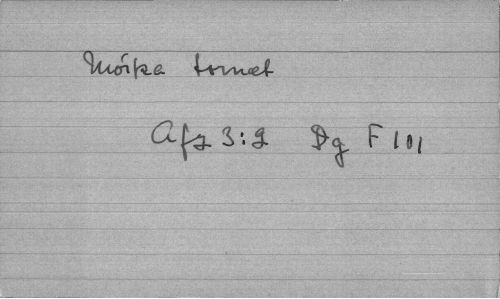 Mörka tornet
Afz 3:2 Dg F 101